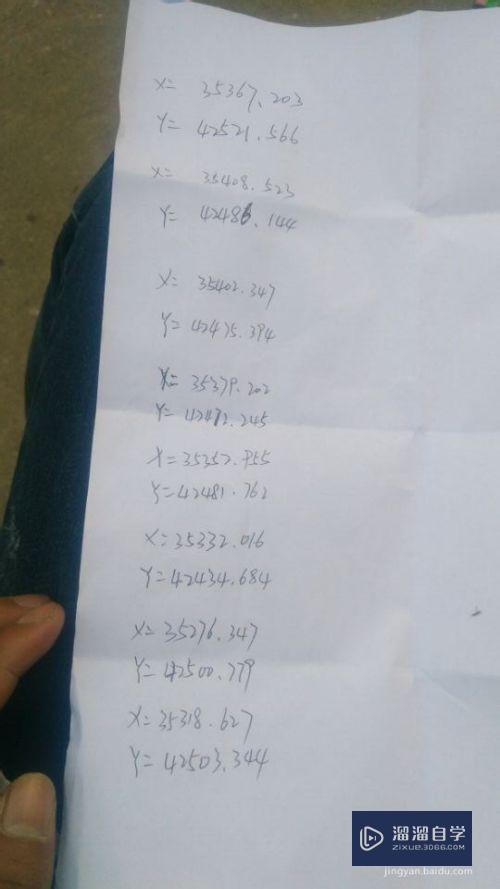 X= 35367.203
Y= 42521.566
X= 35408.523
Y= 42486.144
X= 35402.347
Y= 42475.394
X= 35379.202
X=35352.955
Y=42481.762
X=35332.016
Y=42434.684
X=35276.347
Y=42500.779
X=35318.627
Y=42503.344
溜溜自学
ZIXUE.3D66.COM
jingyan.baidu.com